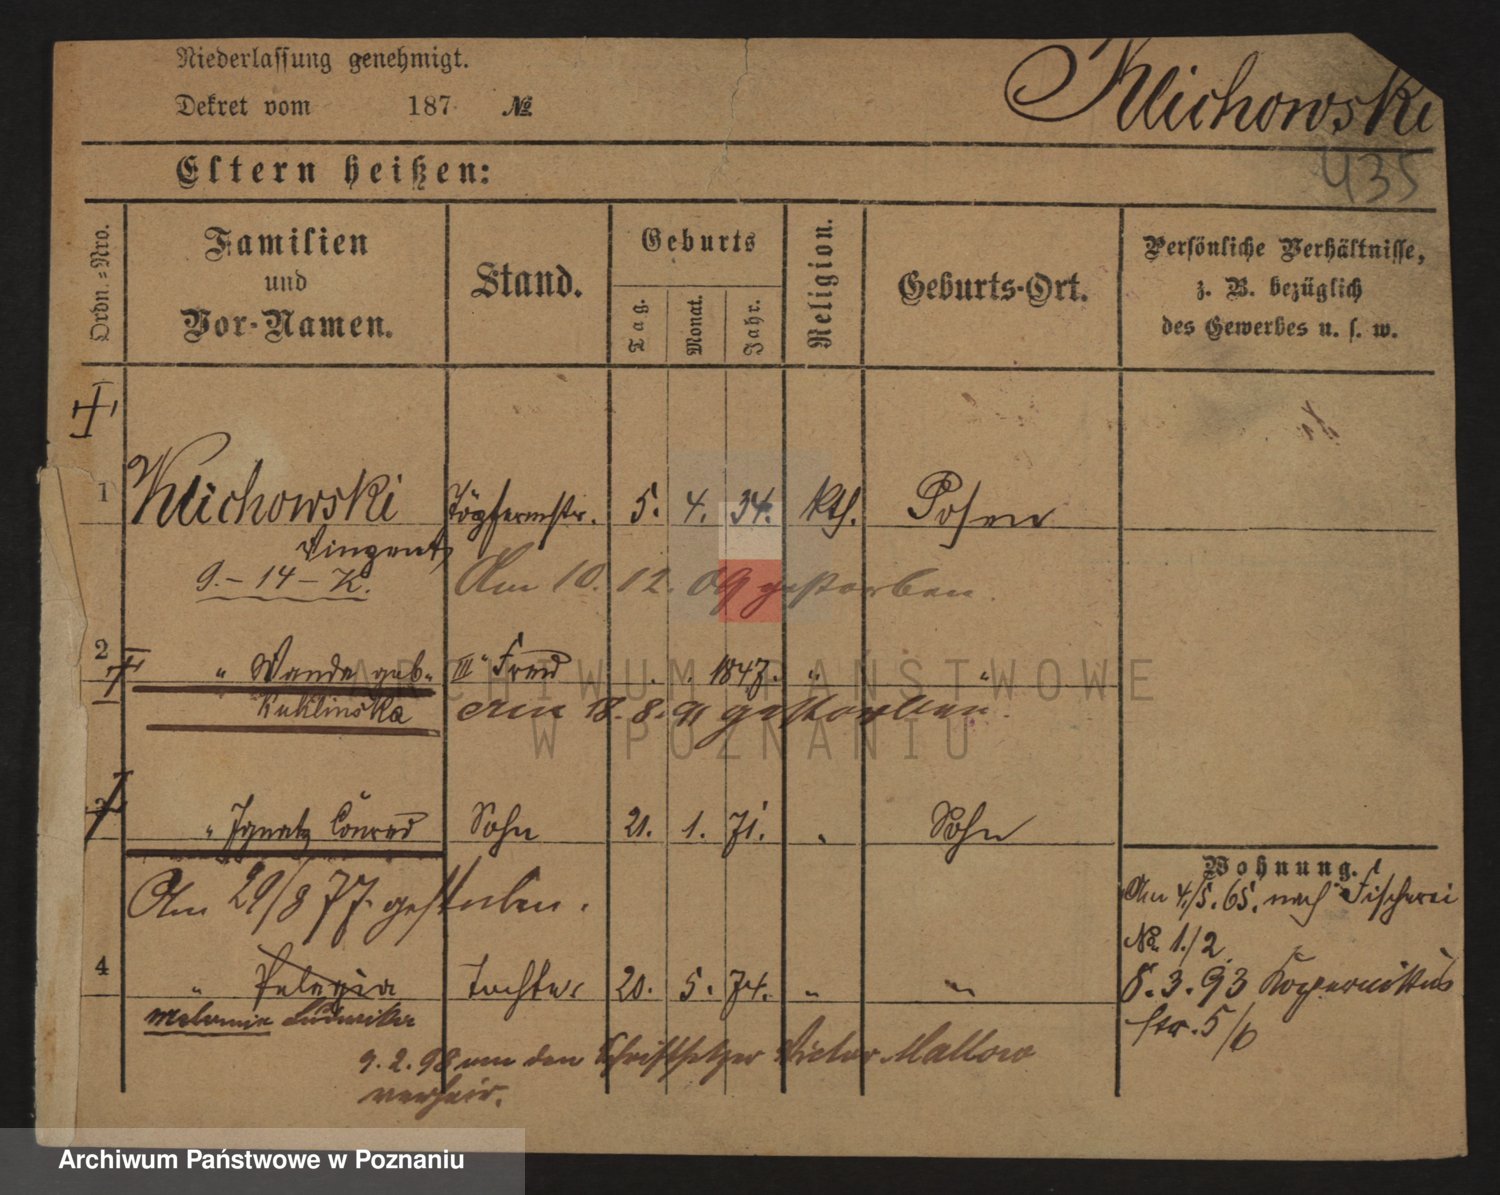 Niederlassung genehmigt.
Dekret vom 187 №
Klichowski
435
Eltern heißen:
Ordn.-Nro.
Familien und Vor-Namen.
Stand.
Geburts
Tag. Monat. Jahr.
Religion.
Geburts-Ort.
Persönliche Verhältnisse,
z. B. bezüglich
des Gewerbes u. s. w.
1 Klichowski Töpfermstr. 5. 4. 34. kth. Posen
Vinzent
9.-14-K. Am 10. 12. 09 gestorben.
2 " Wanda geb. Frau 1847. " "
Kuklinska Am 18. 8. 91 gestorben.
3 " Ignatz Conrad Sohn 21. 1. 71. " Sohn
Am 29/8 77. gestorben.
4 " Pelagia Tochter 20. 5. 74. " "
Melanie Ludwika
9. 2. 98 um den Schriftsetzer Victor Mallow
verheir.
Wohnung.
Am 4./5. 65. nach Fischerei
No. 1./2.
8. 3. 93 Kopernikus
str. 5/6
ARCHIWUM PAŃSTWOWE
W POZNANIU
Archiwum Państwowe w Poznaniu